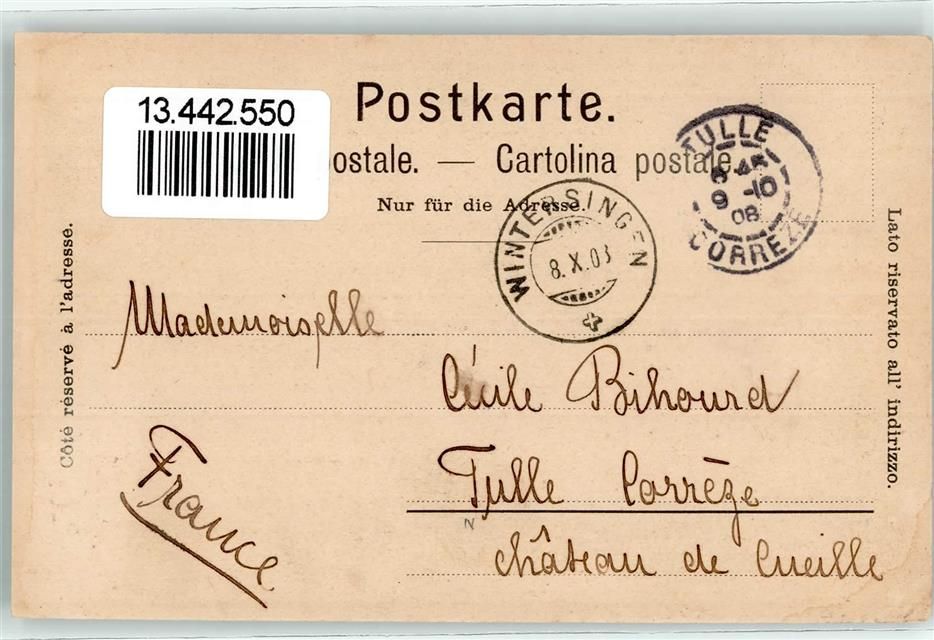 13.442.550
Postkarte.
postale. — Cartolina postale.
Nur für die Adresse.
TULLE
45
9 -10
08
CORREZE
WINTERSINGEN
8.X.03
Côté réservé à l'adresse.
Lato riservato all' indirizzo.
Mademoiselle
Cécile Bihourd
Tulle Corrèze
château de Cueille
France